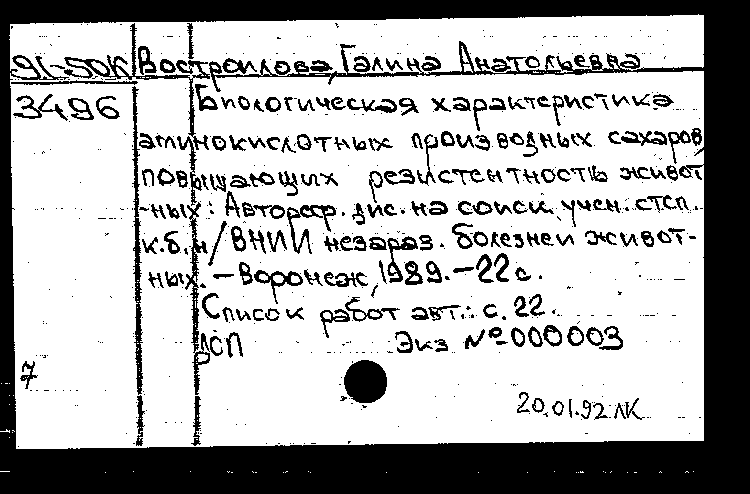 91-50К Вострилова, Галина Анатольевна
3496 Биологическая характеристика
аминокислотных производных сахаров,
повышающих резистентность живот
-ных: Автореф. дис. на соиск. учен. степ.
к.б.н / ВНИИ незараз. болезней живот-
ных. - Воронеж, 1989. - 22 с.
Список работ авт.: с. 22.
ДСП Экз № 000003
7
20.01.92 ЛК